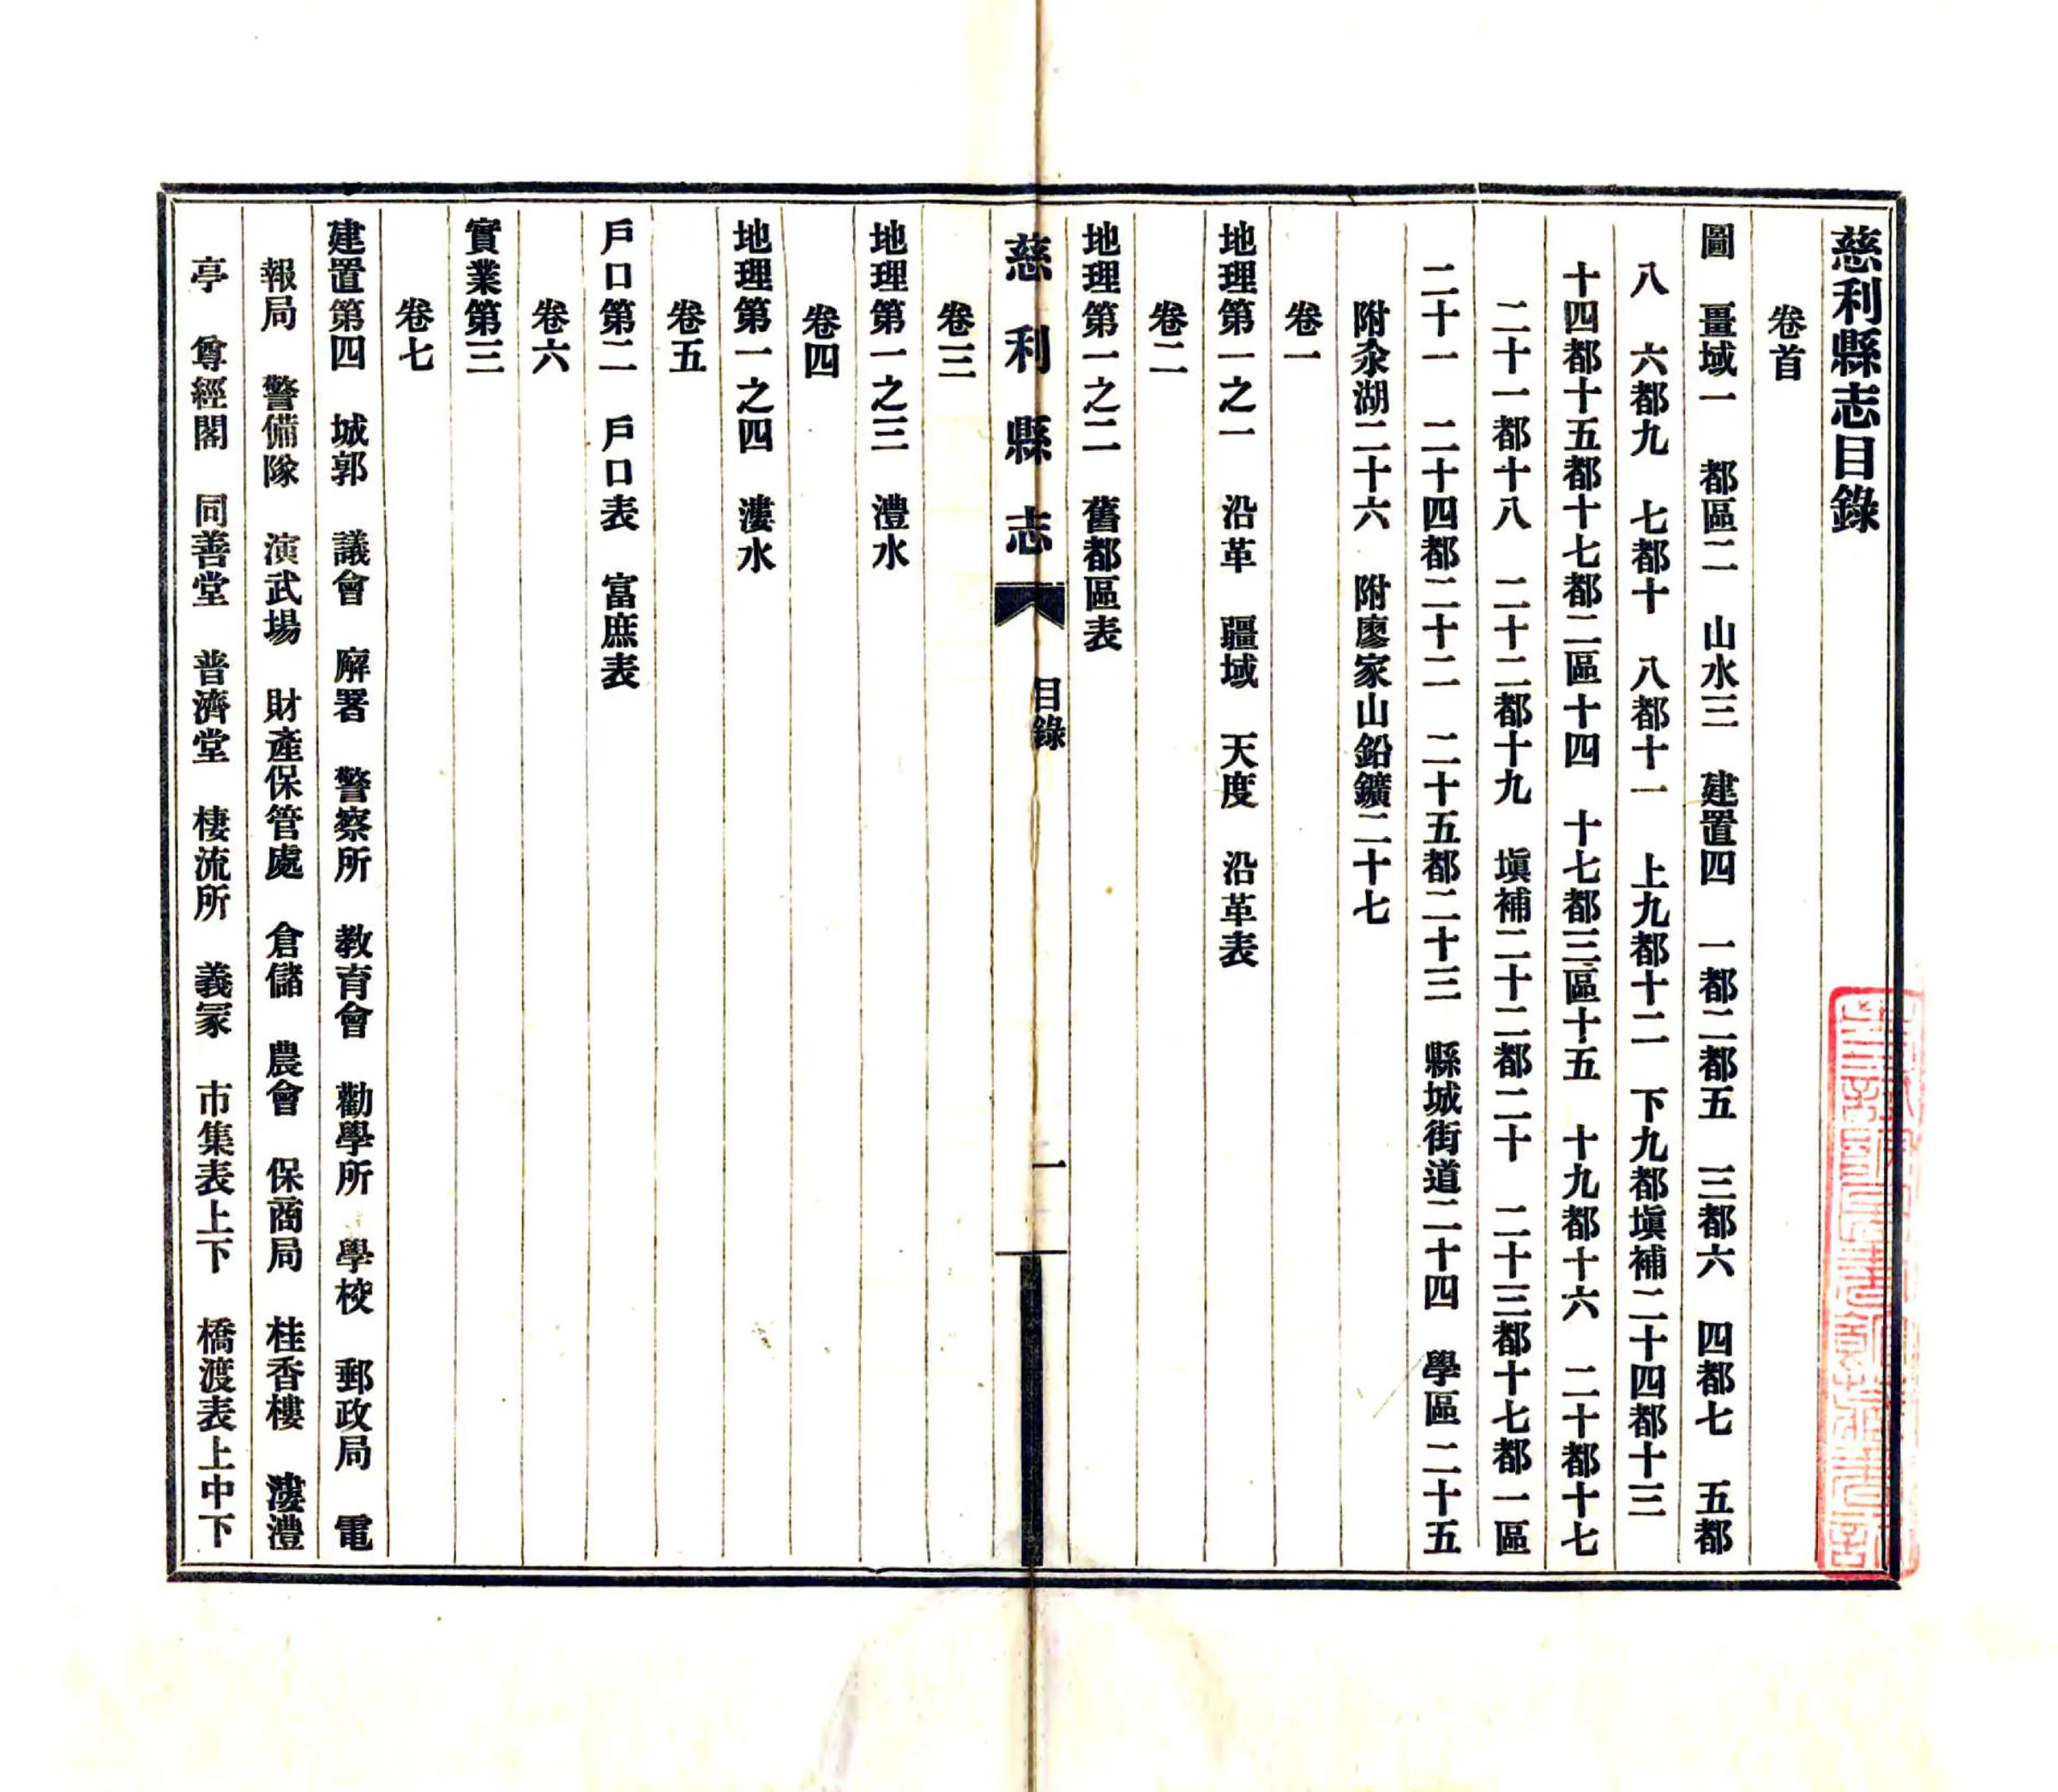 慈利縣志目錄
卷首
圖　畺域一　都區二　山水三　建置四　一都二都五　三都六　四都七　五都
八　六都九　七都十　八都十一　上九都十二　下九都塡補二十四都十三
十四都十五都十七都二區十四　十七都三區十五　十九都十六　二十都十七
二十一都十八　二十二都十九　塡補二十二都二十　二十三都十七都一區
二十一　二十四都二十二　二十五都二十三　縣城街道二十四　學區二十五
附湖二十六　附廖家山鉛鑛二十七
卷一
地理第一之一　沿革　疆域　天度　沿革表
卷二
地理第一之二　舊都區表
慈利縣志　目錄　一
卷三
地理第一之三　澧水
卷四
地理第一之四　漊水
卷五
戶口第二　戶口表　富庶表
卷六
實業第三
卷七
建置第四　城郭　議會　廨署　警察所　教育會　勸學所　學校　郵政局　電
報局　警備隊　演武場　財產保管處　倉儲　農會　保商局　桂香樓　漊澧
亭　尊經閣　同善堂　普濟堂　棲流所　義冢　市集表上下　橋渡表上中下